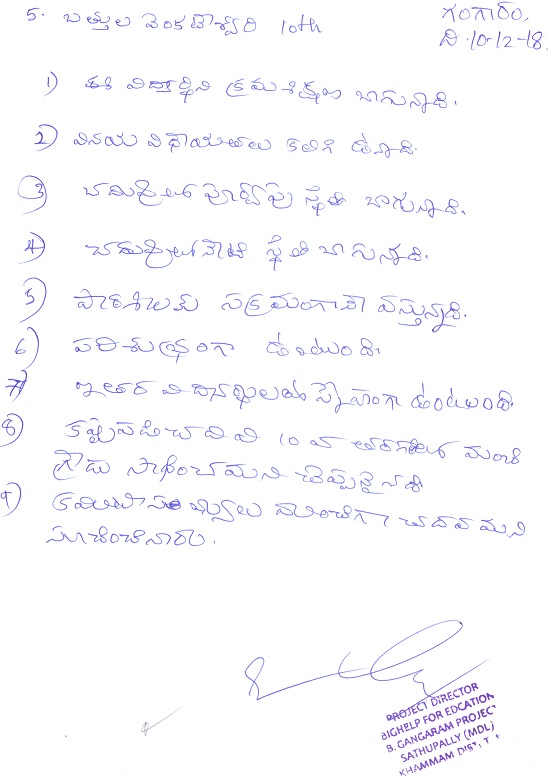 గంగారం.
5. బత్తుల వెంకటేశ్వరి 10th
ది 10-12-18.
1) ఈ విద్యార్థిని క్రమశిక్షణ బాగున్నాది.
2) వినయ విధేయతలు కలిగి ఉన్నాది.
3) చదువులో పూర్వపు స్థితి బాగున్నాది.
4) చదువులో నేటి స్థితి బాగున్నాది.
5) పాఠశాలకు సక్రమంగానే వస్తున్నాది.
6) పరిశుభ్రంగా ఉంటుంది.
7) ఇతర విద్యార్థులతో స్నేహంగా ఉంటుంది.
8) కష్టపడి చదివి 10 వ తరగతిలో మంచి
గ్రేడు సాధించమని చెప్పడమైనది
9) కఠిన
చదవమని
సూచించినారు.
PROJECT DIRECTOR
BIGHELP FOR EDCATION
B. GANGARAM PROJEC
SATHUPALLY (MDL)
KHAMMAM DIST, T